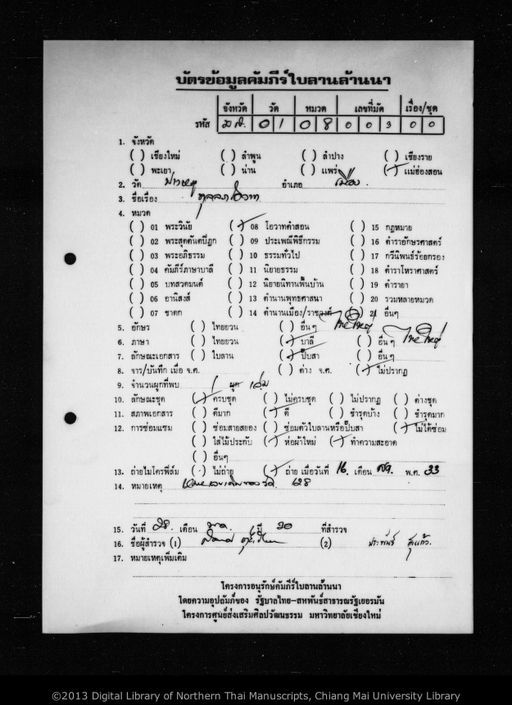 บัตรข้อมูลคัมภีร์ใบลานล้านนา
จังหวัด วัด หมวด เลขที่มัด เรื่อง/ชุด
รหัส มส. 01 08 003 00
1. จังหวัด
( ) เชียงใหม่ ( ) ลำพูน ( ) ลำปาง ( ) เชียงราย
( ) พะเยา ( ) น่าน ( ) แพร่ (✓) แม่ฮ่องสอน
2. วัด อำเภอ เมือง
3. ชื่อเรื่อง
4. หมวด
( ) 01 พระวินัย (✓) 08 โอวาทคำสอน ( ) 15 กฎหมาย
( ) 02 พระสุตตันตปิฎก ( ) 09 ประเพณีพิธีกรรม ( ) 16 ตำราอักษรศาสตร์
( ) 03 พระอภิธรรม ( ) 10 ธรรมทั่วไป ( ) 17 กวีนิพนธ์ร้อยกรอง
( ) 04 คัมภีร์ภาษาบาลี ( ) 11 นิยายธรรม ( ) 18 ตำราโหราศาสตร์
( ) 05 บทสวดมนต์ ( ) 12 นิยายนิทานพื้นบ้าน ( ) 19 ตำรายา
( ) 06 อานิสงส์ ( ) 13 ตำนานพุทธศาสนา ( ) 20 รวมหลายหมวด
( ) 07 ชาดก ( ) 14 ตำนานเมือง/ราชวงศ์ ( ) 21 อื่นๆ
5. อักษร ( ) ไทยยวน (✓) อื่นๆ ไทใหญ่
6. ภาษา ( ) ไทยยวน (✓) บาลี (✓) อื่นๆ ไทใหญ่
7. ลักษณะเอกสาร ( ) ใบลาน (✓) พับสา ( ) อื่นๆ
8. จาร/บันทึก เมื่อ จ.ศ. ( ) ค่าง จ.ศ. (✓) ไม่ปรากฏ
9. จำนวนผูกที่พบ 1 ผูก เล่ม
10. ลักษณะชุด (✓) ครบชุด ( ) ไม่ครบชุด ( ) ไม่ปรากฏ ( ) ต่างชุด
11. สภาพเอกสาร ( ) ดีมาก (✓) ดี ( ) ชำรุดบ้าง ( ) ชำรุดมาก
12. การซ่อมแซม ( ) ซ่อมสายสยอง ( ) ซ่อมตัวใบลานหรือปั๊บสา (✓) ไม่ได้ซ่อม
( ) ใส่ไม้ประกับ (✓) ห่อผ้าใหม่ (✓) ทำความสะอาด
( ) อื่นๆ
13. ถ่ายไมโครฟิล์ม ( ) ไม่ถ่าย (✓) ถ่าย เมื่อวันที่ 16 เดือน พ.ศ. 33
14. หมายเหตุ 628
15. วันที่ 28 เดือน ปี 30 ที่สำรวจ
16. ชื่อผู้สำรวจ (1) (2) ประพันธ์
17. หมายเหตุเพิ่มเติม
โครงการอนุรักษ์คัมภีร์ใบลานล้านนา
โดยความอุปถัมภ์ของ รัฐบาลไทย-สหพันธ์สาธารณรัฐเยอรมัน
โครงการศูนย์ส่งเสริมศิลปวัฒนธรรม มหาวิทยาลัยเชียงใหม่
©2013 Digital Library of Northern Thai Manuscripts, Chiang Mai University Library